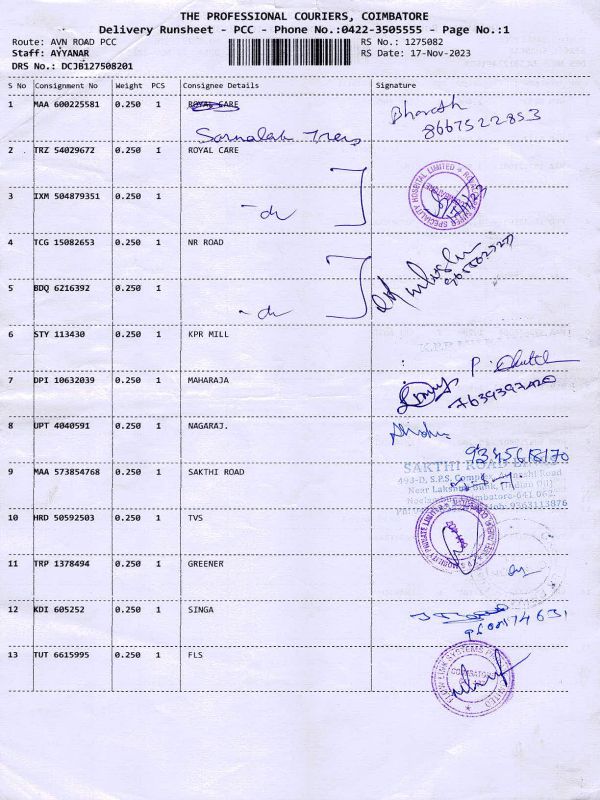 THE PROFESSIONAL COURIERS, COIMBATORE
Delivery Runsheet - PCC - Phone No.:0422-3505555 - Page No.:1
Route: AVN ROAD PCC RS No.: 1275082
Staff: AYYANAR RS Date: 17-Nov-2023
DRS No.: DCJB127508201
S No Consignment No Weight PCS Consignee Details Signature
1 MAA 600225581 0.250 1 ROYAL CARE Bharath
8667522853
2 TRZ 54029672 0.250 1 ROYAL CARE
3 IXM 504879351 0.250 1 -do
4 TCG 15082653 0.250 1 NR ROAD
5 BDQ 6216392 0.250 1 -do
6 STY 113430 0.250 1 KPR MILL
7 DPI 10632039 0.250 1 MAHARAJA
8 UPT 4040591 0.250 1 NAGARAJ.
9345618170
9 MAA 573854768 0.250 1 SAKTHI ROAD
SAKTHI ROAD
493-D, S.P.S. Road
Near Lakshmi
9363113876
10 HRD 50592503 0.250 1 TVS
11 TRP 1378494 0.250 1 GREENER
12 KDI 605252 0.250 1 SINGA
13 TUT 6615995 0.250 1 FLS